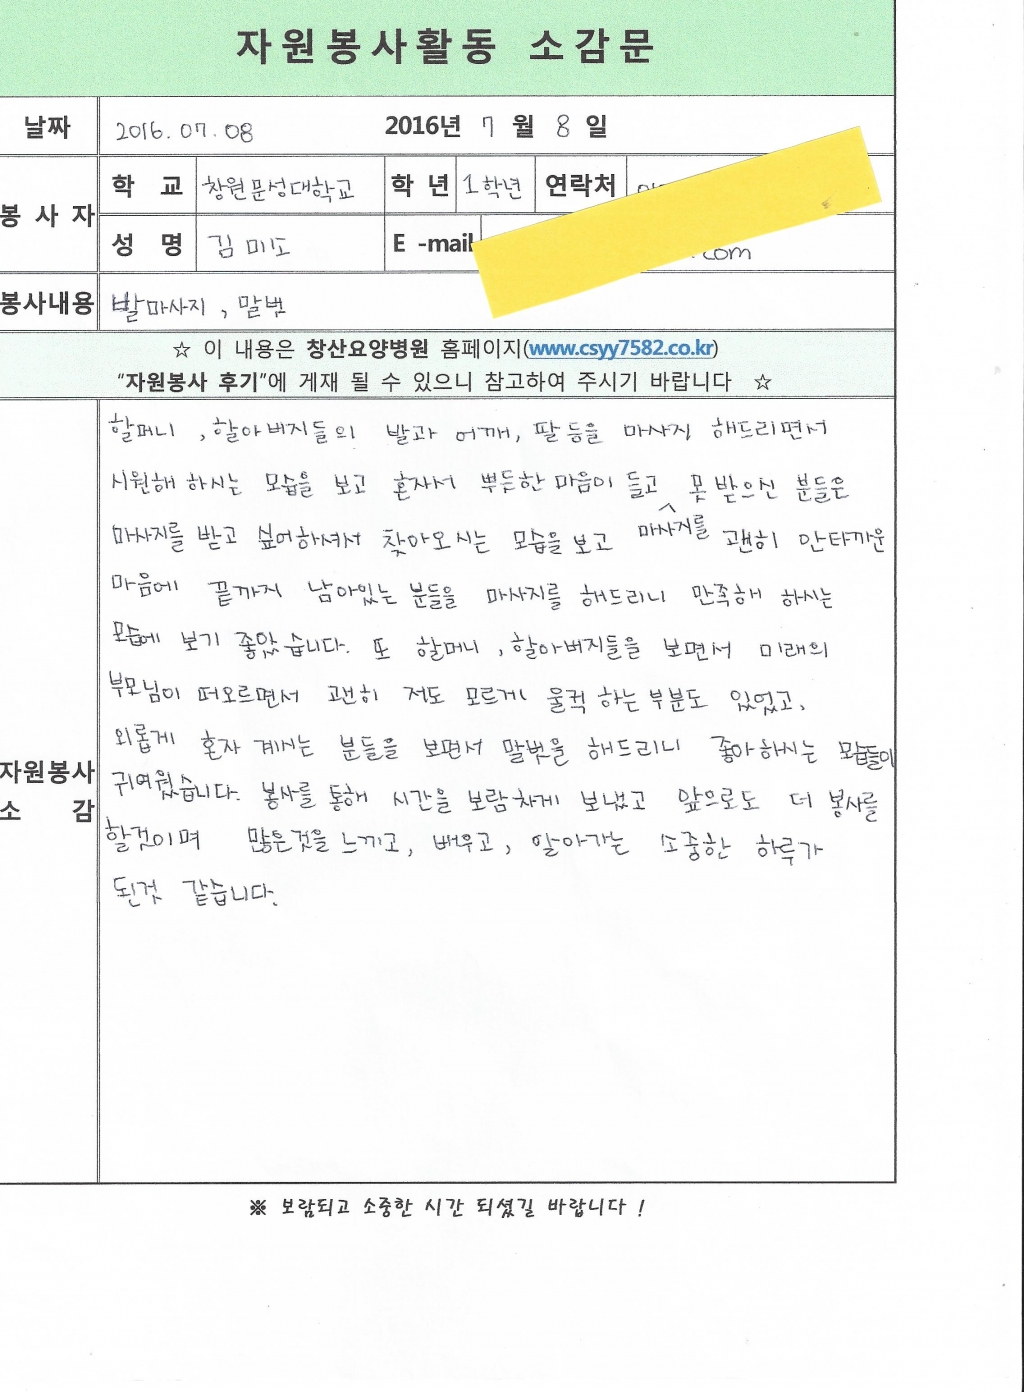 자원봉사활동 소감문
날짜 2016. 07. 08 2016년 7 월 8 일
봉 사 자
학 교 창원문성대학교 학 년 1학년 연락처
성 명 김미도 E -mail .com
봉사내용 발마사지 , 말벗
☆ 이 내용은 창산요양병원 홈페이지(www.csyy7582.co.kr)
“자원봉사 후기”에 게재 될 수 있으니 참고하여 주시기 바랍니다 ☆
자원봉사
소 감
할머니 , 할아버지들의 발과 어깨, 팔 등을 마사지 해드리면서
시원해 하시는 모습을 보고 혼자서 뿌듯한 마음이 들고 못 받으신 분들은
마사지를 받고 싶어하셔서 찾아오시는 모습을 보고 마사지를 괜히 안타까운
마음에 끝까지 남아있는 분들을 마사지를 해드리니 만족해 하시는
모습에 보기 좋았습니다. 또 할머니 , 할아버지들을 보면서 미래의
부모님이 떠오르면서 괜히 저도 모르게 울컥 하는 부분도 있었고,
외롭게 혼자 계시는 분들을 보면서 말벗을 해드리니 좋아하시는 모습들이
귀여웠습니다. 봉사를 통해 시간을 보람차게 보냈고 앞으로도 더 봉사를
할것이며 많은것을 느끼고, 배우고, 알아가는 소중한 하루가
된것 같습니다.
※ 보람되고 소중한 시간 되셨길 바랍니다 !